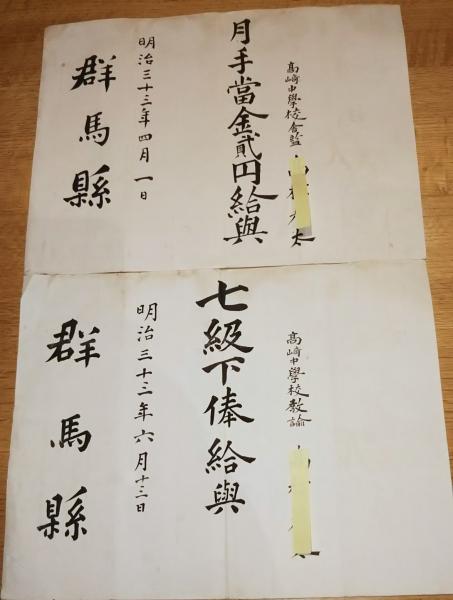 高崎中學校舎監
月手當金貳円給與
明治三十三年四月一日
群馬縣
高崎中學校教諭
七級下俸給與
明治三十三年六月十三日
群馬縣